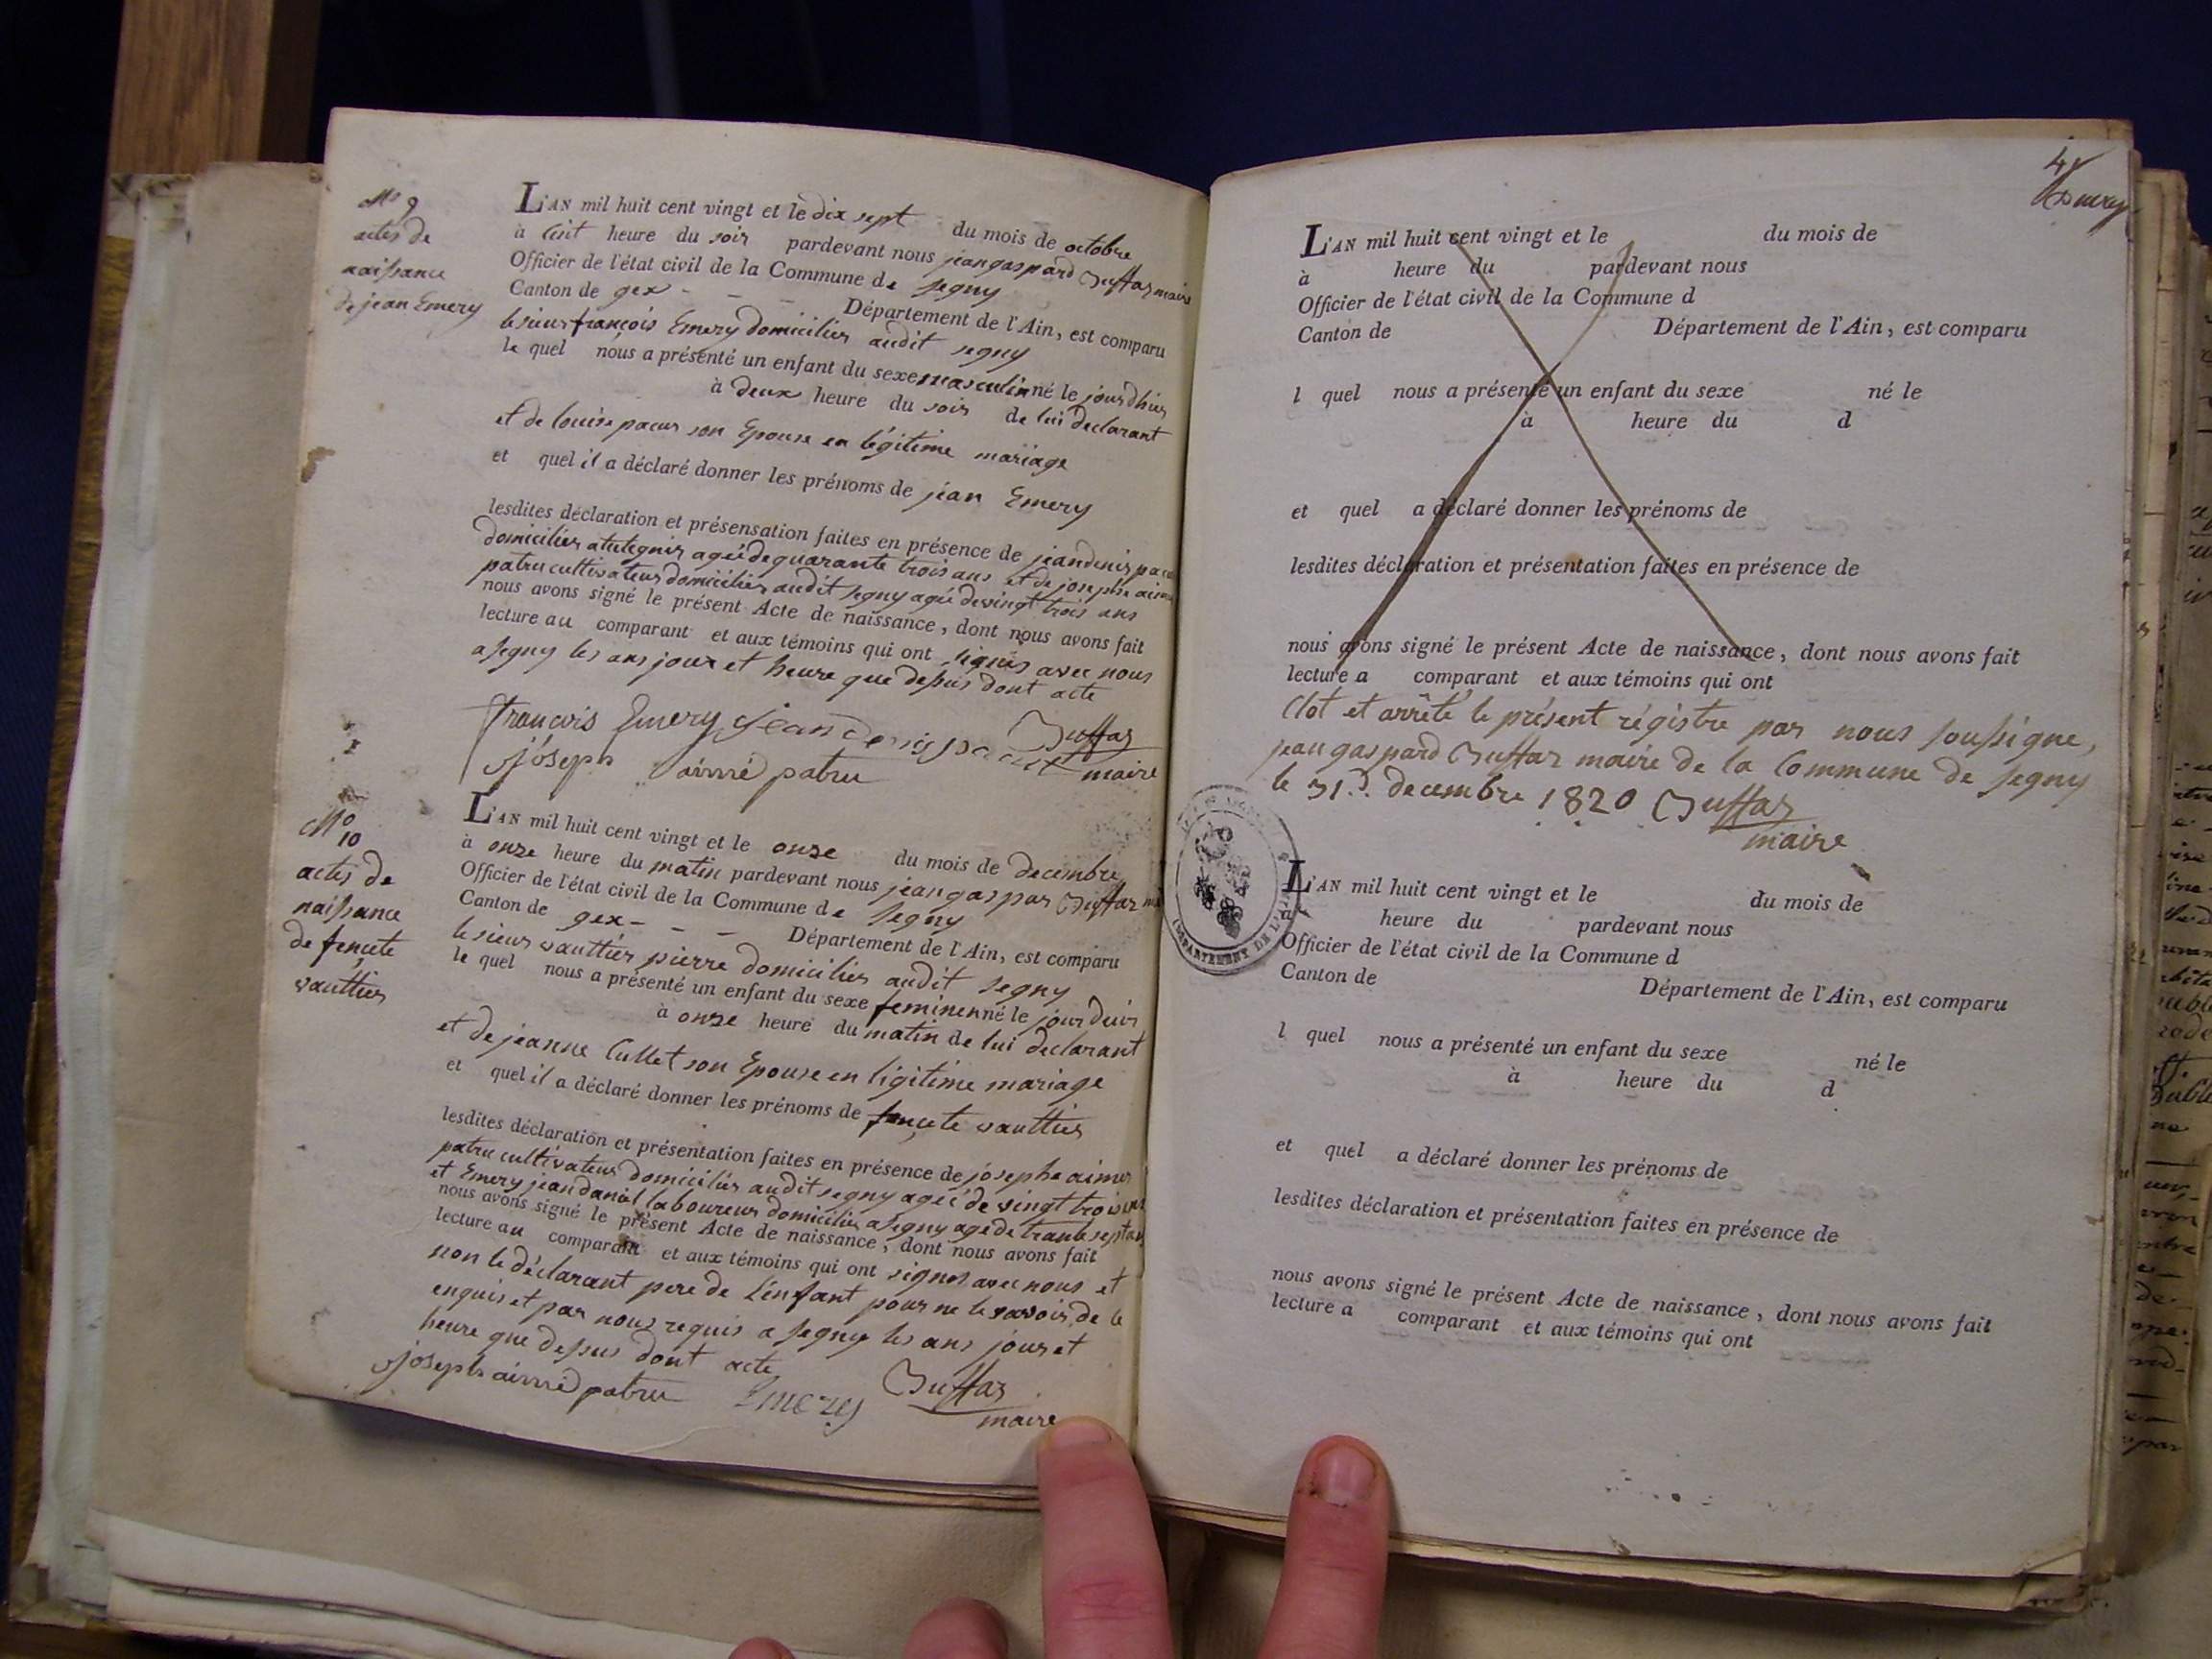 No 9
actes de
naissance
de jean Emery
L'AN mil huit cent vingt et le dix sept du mois de octobre
à heure du soir pardevant nous jean gaspard Buffaz maire
Officier de l'état civil de la Commune de Segny
Canton de gex - - - Département de l'Ain, est comparu
le sieur françois Emery domicilier audit segny
le quel nous a présenté un enfant du sexe masculin né le jourdhier
à deux heure du soir de lui declarant
et de louise son Epouse en légitime mariage
et quel il a déclaré donner les prénoms de jean Emery
lesdites déclaration et présensation faites en présence de jean denis
domicilier agée de quarante trois ans et de josephe aimé
patru cultivateur domicilier audit segny agée de vingt trois ans
nous avons signé le présent Acte de naissance, dont nous avons fait
lecture au comparant et aux témoins qui ont signés avec nous
a segny les ans jour et heure que dessus dont acte
françois Emery jean denis Buffaz
joseph aimé patru maire
No
10
actes de
naissance
de fencete
vauttier
L'AN mil huit cent vingt et le onze du mois de decembre
à onze heure du matin pardevant nous jean gaspar Buffaz
Officier de l'état civil de la Commune de Segny
Canton de gex - - - Département de l'Ain, est comparu
le sieur vauttier pierre domicilier audit segny
le quel nous a présenté un enfant du sexe feminen né le jour
à onze heure du matin de lui declarant
et de jeanne Cullet son Epouse en ligitime mariage
et quel il a déclaré donner les prénoms de vauttier
lesdites déclaration et présentation faites en présence de josephe aimer
patru cultivateur domicilier audit segny agée de vingt trois ans
et Emery jean daniel laboureur domicilier a segny agé de trante sept ans
nous avons signé le présent Acte de naissance, dont nous avons fait
lecture au comparant et aux témoins qui ont signes avec nous et
non le déclarant pere de l'enfant pour ne le savoir de le
enquis et par nous requis a segny les ans jour et
heure que dessus dont acte
joseph aimé patru Emery Buffaz
maire
4
Emery
L'AN mil huit cent vingt et le du mois de
à heure du pardevant nous
Officier de l'état civil de la Commune d
Canton de Département de l'Ain, est comparu
l quel nous a présenté un enfant du sexe né le
à heure du d
et quel a déclaré donner les prénoms de
lesdites déclaration et présentation faites en présence de
nous avons signé le présent Acte de naissance, dont nous avons fait
lecture a comparant et aux témoins qui ont
Clot et arrêté le présent régistre par nous soussigne,
jean gaspard Buffaz maire de la Commune de Segny
le 31.e decembre 1820 Buffaz
maire
DÉPARTEMENT DE L'AIN
L'AN mil huit cent vingt et le du mois de
à heure du pardevant nous
Officier de l'état civil de la Commune d
Canton de Département de l'Ain, est comparu
l quel nous a présenté un enfant du sexe né le
à heure du d
et quel a déclaré donner les prénoms de
lesdites déclaration et présentation faites en présence de
nous avons signé le présent Acte de naissance, dont nous avons fait
lecture a comparant et aux témoins qui ont